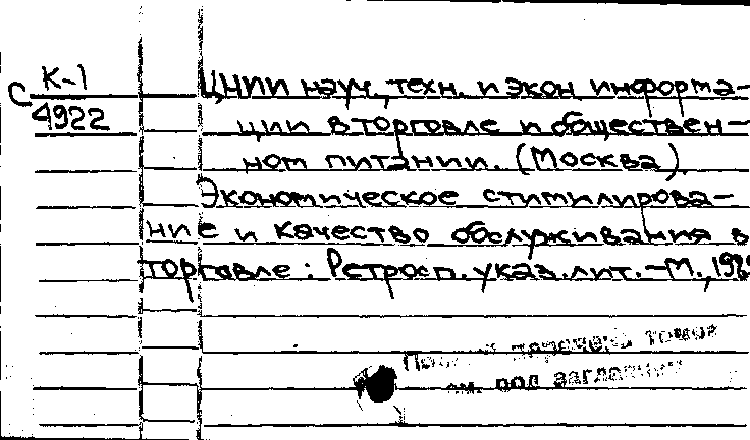 К-1
С 4922
ЦНИИ науч., техн. и экон. информа-
ции в торговле и обществен-
ном питании. (Москва).
Экономическое стимулирова-
ние и качество обслуживания в
торговле: Ретросп. указ. лит. -М.,
перечень томов
см. под заглавием